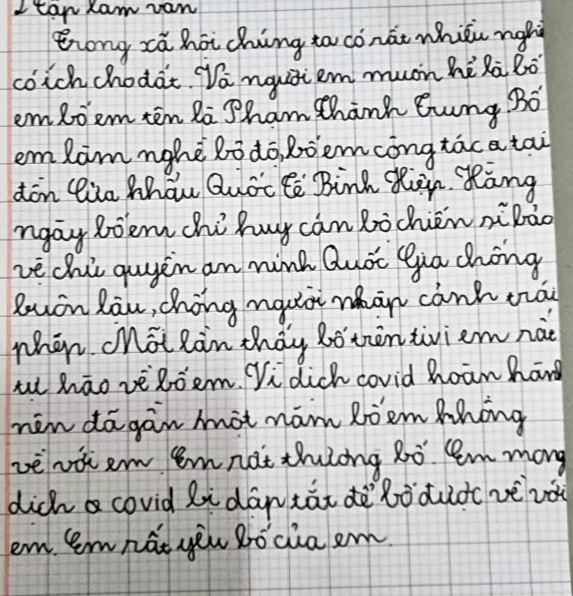 2 tập làm văn
Trong xã hội chúng ta có rất nhiều nghề
có ích cho đất. Và người em muốn kể là bố
em bố em tên là Phạm Thành Trung Bố
em làm nghề bộ đô, bố em công tác a tại
đồn Cửa khẩu Quốc tế Bình Hiệp. Hằng
ngày bố em chỉ huy cán bộ chiến sĩ bảo
vệ chủ quyền an ninh Quốc Gia chống
buôn lâu, chống người nhập cảnh trái
phép. Mỗi lần thấy bố trên tivi em rất
tự hào về bố em. Vì dịch covid hoàn hành
nên đã gần một năm bố em không
về với em em rất thương bố. em mong
dịch a covid bị dập tắt để bố được về với
em. em rất yêu bố của em.